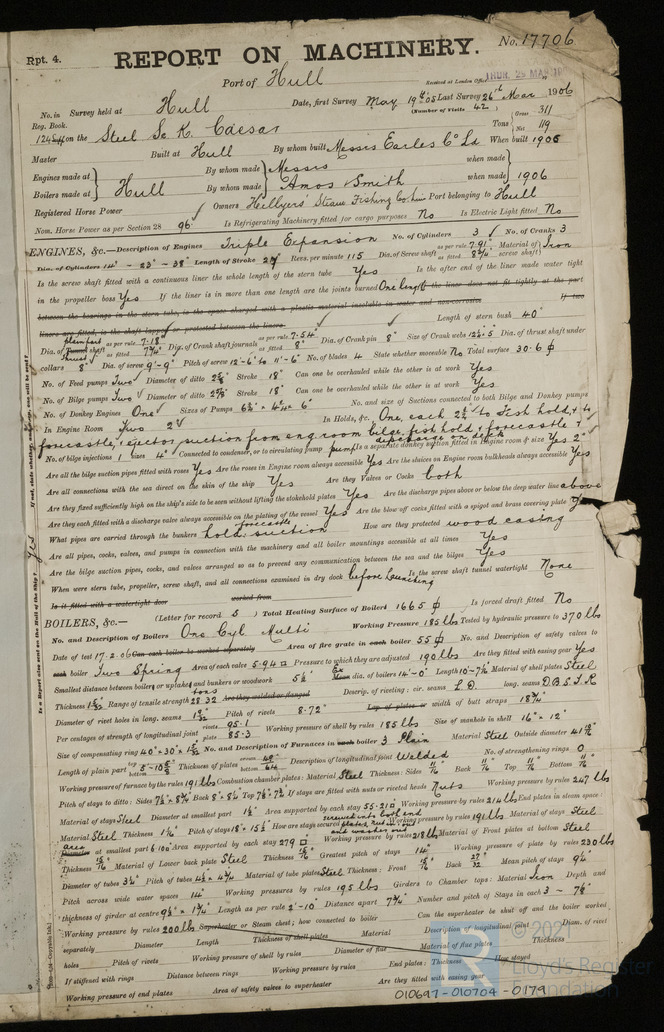 Rpt. 4.
No. 17706
REPORT ON MACHINERY.
Port of Hull
Received at London Office THUR. 29 MAR 1906
No. in Survey held at Hull Date, first Survey May 19th 05 Last Survey 26th Mar 1906
Reg. Book. (Number of Visits 42)
on the Steel Sc. K. Caesar Tons { Gross 311 Net 119
Master Built at Hull By whom built Messrs Earles Co Ld When built 1906
Engines made at Hull By whom made Messrs when made
Boilers made at Hull By whom made Amos Smith when made 1906
Registered Horse Power Owners Hellyers Steam Fishing Co. Lim Port belonging to Hull
Nom. Horse Power as per Section 28 96 Is Refrigerating Machinery fitted for cargo purposes No Is Electric Light fitted No
ENGINES, &c.—Description of Engines Triple Expansion No. of Cylinders 3 No. of Cranks 3
Dia. of Cylinders 14" - 23" - 38" Length of Stroke 27" Revs. per minute 115 Dia. of Screw shaft as per rule 7.91" as fitted 8¼" Material of screw shaft Iron
Is the screw shaft fitted with a continuous liner the whole length of the stern tube Yes Is the after end of the liner made water tight
in the propeller boss Yes If the liner is in more than one length are the joints burned One length the liner does not fit tightly at the part
between the bearings in the stern tube, is the space charged with a plastic material insoluble in water and non-corrosive If two
liners are fitted, is the shaft lapped or protected between the liners Length of stern bush 40"
Dia. of Tunnel shaft as per rule 7.18" as fitted 7¾" Dia. of Crank shaft journals as per rule 7.54" as fitted 8" Dia. of Crank pin 8" Size of Crank webs Dia. of thrust shaft under
collars 8" Dia. of screw 9'-9" Pitch of screw 12'-6" to 11'-6" No. of blades 4 State whether moveable No Total surface 30.6 ф
No. of Feed pumps Two Diameter of ditto Stroke 18" Can one be overhauled while the other is at work Yes
No. of Bilge pumps Two Diameter of ditto Stroke 18" Can one be overhauled while the other is at work Yes
No. of Donkey Engines One Sizes of Pumps No. and size of Suctions connected to both Bilge and Donkey pumps
In Engine Room Two 2" In Holds, &c. One, each 2¼ to Fish hold, & to
forecastle, & ejector suction from eng. room bilge, fish hold, & forecastle &
discharge on deck
No. of bilge injections 1 sizes 4" Connected to condenser, or to circulating pump pump Is a separate donkey suction fitted in Engine room & size Yes 2"
Are all the bilge suction pipes fitted with roses Yes Are the roses in Engine room always accessible Yes Are the sluices on Engine room bulkheads always accessible Yes
Are all connections with the sea direct on the skin of the ship Yes Are they Valves or Cocks both
Are they fixed sufficiently high on the ship's side to be seen without lifting the stokehold plates Yes Are the discharge pipes above or below the deep water line above
Are they each fitted with a discharge valve always accessible on the plating of the vessel Yes Are the blow off cocks fitted with a spigot and brass covering plate
What pipes are carried through the bunkers forecastle hold suction How are they protected wood casing
Are all pipes, cocks, valves, and pumps in connection with the machinery and all boiler mountings accessible at all times Yes
Are the bilge suction pipes, cocks, and valves arranged so as to prevent any communication between the sea and the bilges Yes
When were stern tube, propeller, screw shaft, and all connections examined in dry dock before Launching Is the screw shaft tunnel watertight None
Is it fitted with a watertight door worked from
BOILERS, &c.— (Letter for record S) Total Heating Surface of Boilers 1665 ф Is forced draft fitted No
No. and Description of Boilers One Cyl Multi Working Pressure 185 lbs Tested by hydraulic pressure to 370 lbs
Date of test 17.2.06 Can each boiler be worked separately Area of fire grate in each boiler 55 ф No. and Description of safety valves to
each boiler Two Spring Area of each valve 5.94 Pressure to which they are adjusted 190 lbs Are they fitted with easing gear Yes
Smallest distance between boilers or uptakes and bunkers or woodwork Mean dia. of boilers 14'-0" Length 10'-7½" Material of shell plates Steel
Thickness Range of tensile strength 28.32 tons Are they welded or flanged Descrip. of riveting: cir. seams L.D. long. seams D.B.S.T.R
Diameter of rivet holes in long. seams Pitch of rivets 8.72" Lap of plates or width of butt straps 18¾"
Per centages of strength of longitudinal joint rivets 95.1 plate 85.3 Working pressure of shell by rules 185 lbs Size of manhole in shell 16" × 12"
Size of compensating ring No. and Description of Furnaces in each boiler 3 Plain Material Steel Outside diameter
Length of plain part top bottom Thickness of plates crown bottom Description of longitudinal joint Welded No. of strengthening rings 0
Working pressure of furnace by the rules 191 lbs Combustion chamber plates: Material Steel Thickness: Sides 11/16" Back 11/16" Top 11/16" Bottom 11/16"
Pitch of stays to ditto: Sides Back Top If stays are fitted with nuts or riveted heads Nuts Working pressure by rules 247 lbs
Material of stays Steel Diameter at smallest part Area supported by each stay 55.21 Working pressure by rules 214 lbs End plates in steam space:
Material Steel Thickness Pitch of stays How are stays secured screwed into both end plates, nuts and washers out Working pressure by rules 191 lbs Material of stays Steel
area Diameter at smallest part 6.10 Area supported by each stay 279 Working pressure by rules 218 lbs Material of Front plates at bottom Steel
Thickness Material of Lower back plate Steel Thickness Greatest pitch of stays 14" Working pressure of plate by rules 230 lbs
Diameter of tubes 3¼" Pitch of tubes Material of tube plates Steel Thickness: Front 15/16" Back 27/32" Mean pitch of stays 9¼"
Pitch across wide water spaces 14" Working pressures by rules 195 lbs Girders to Chamber tops: Material Iron Depth and
thickness of girder at centre Length as per rule 2'-10" Distance apart 7¾" Number and pitch of Stays in each 3 - 7½"
Working pressure by rules 200 lbs Superheater or Steam chest; how connected to boiler Can the superheater be shut off and the boiler worked
separately Diameter Length Thickness of shell plates Material Description of longitudinal joint Diam. of rivet
holes Pitch of rivets Working pressure of shell by rules Diameter of flue Material of flue plates Thickness
If stiffened with rings Distance between rings Working pressure by rules End plates: Thickness How stayed
Working pressure of end plates Area of safety valves to superheater Are they fitted with easing gear
© 2021
Lloyd's Register
Foundation
010697-010704-0179
Is a Report also sent on the Hull of the Ship? Yes